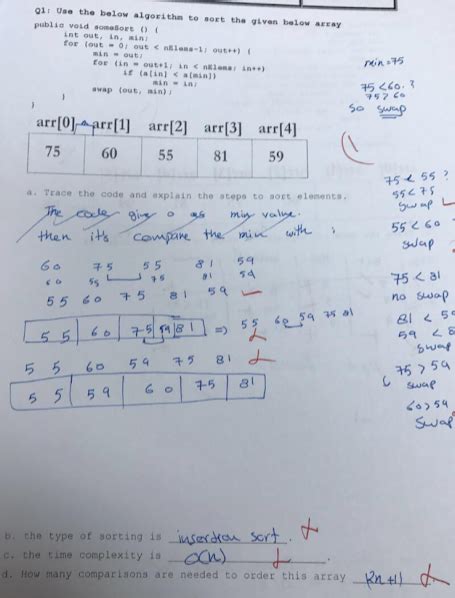 Q1: Use the below algorithm to sort the given below array
public void someSort () {
int out, in, min;
for (out = 0; out < nElems-1; out++) {
min = out;
for (in = out+1; in < nElems; in++)
if (a[in] < a[min])
min = in;
swap (out, min);
}
}
min = 75
75 < 60 ?
75 > 60
So swap
arr[0] arr[1] arr[2] arr[3] arr[4]
75 60 55 81 59
a. Trace the code and explain the steps to sort elements.
The code give 0 as min value.
then its compare the min with
60 75 55 81 59
60 55 75 81 59
55 60 75 81 59
55 60 75 59 81 => 55 60 59 75 81
55 60 59 75 81
55 59 60 75 81
75 < 55 ?
55 < 75
swap
55 < 60
swap
75 < 81
no swap
81 < 59
59 < 8
swap
75 > 59
swap
60 > 59
swap
b. the type of sorting is insertion sort.
c. the time complexity is O(n)
d. How many comparisons are needed to order this array (2n+1)